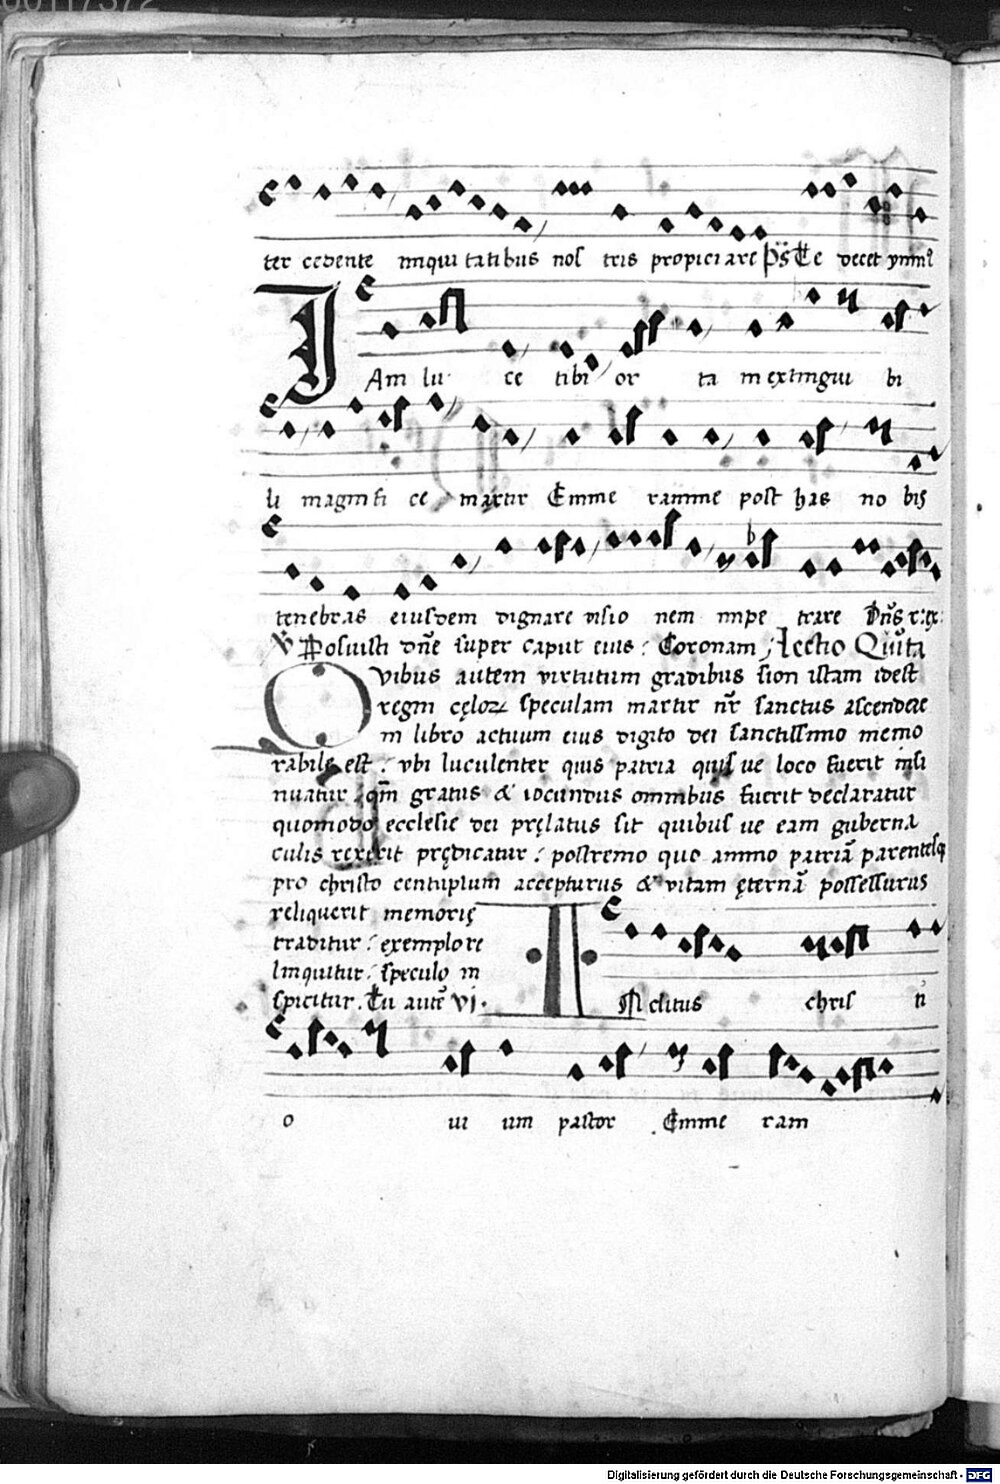 ter cedente iniqui tatibus nos tris propiciare Ps Te decet ymns
IAm lu ce tibi or ta inextingui bi
li magnifi ce martir Emme ramme post has no bis
tenebras eiusdem dignare visio nem impe trare Dns r: ex:
V Posuisti dne super caput eius : Coronam Lectio Quita
Quibus autem virtutum gradibus sion istam idest
regni cęloꝝ speculam martir nr sanctus ascendere
in libro actuum eius digito dei sanctissimo memo
rabile est : vbi luculenter quis patria quis ue loco fuerit insi
nuatur qm gratus & iocundus omnibus fuerit declaratur
quomodo ecclesie dei pręlatus sit quibus ue eam guberna
culis rexerit prędicatur : postremo quo animo patriā parentesq
pro christo centuplum accepturus & vitam ęternā possessurus
reliquerit memorię
traditur : exemplo re
linquitur : speculo in
spicitur . Tu autē VI .
INclitus chris ti
o ui um pastor . Emme ram
Digitalisierung gefördert durch die Deutsche Forschungsgemeinschaft - DFG